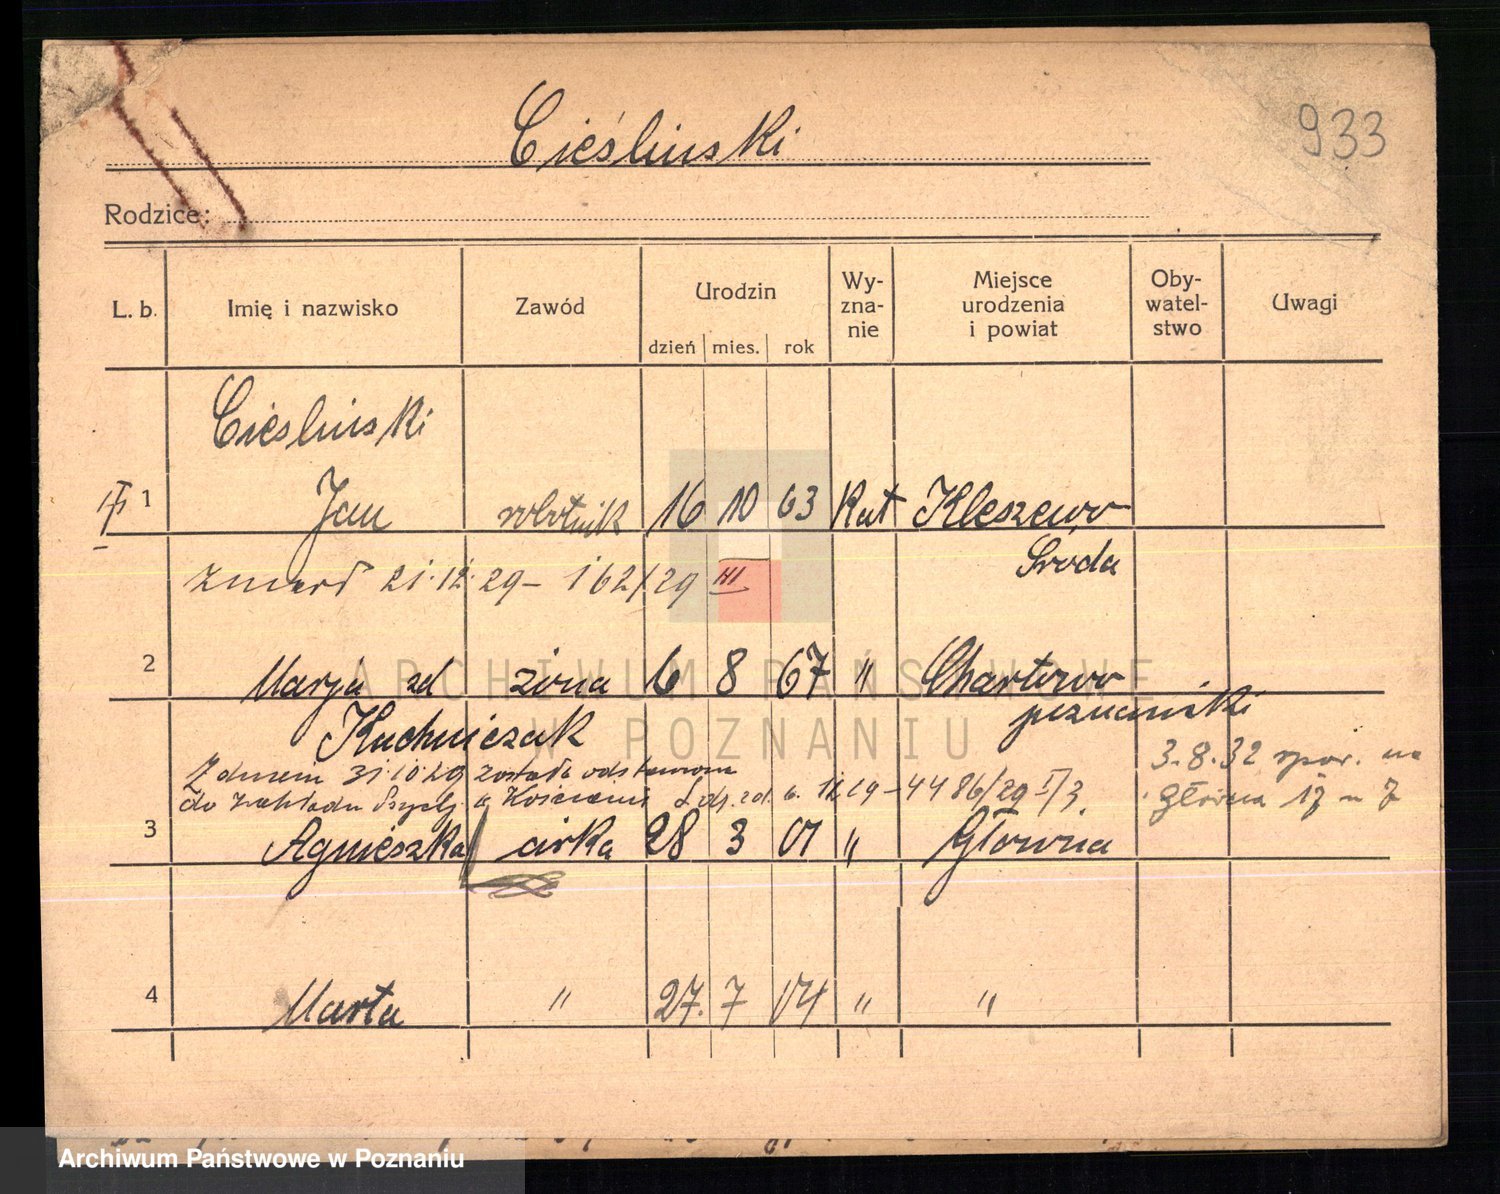 Cieślinski
933
Rodzice:
L. b.
Imię i nazwisko
Zawód
Urodzin
dzień mies. rok
Wy-
zna-
nie
Miejsce
urodzenia
i powiat
Oby-
watel-
stwo
Uwagi
Cieslinski
1 Jan robotnik 16 10 63 Kat Kleszewo
Środa
zmarł 21.12.29 – 162/29 III
2 Marja zd żona 6 8 67 " Chartowo
poznański
Kuchniczak
Z dniem 31.10.29 została odstawiona
do zakładu Psych. w Kościanie 4486/29 I/3
3.8.32 na
Główna 17 m 7
3 Agnieszka córka 28 3 01 " Główna
4 Marta " 27. 7 04 " "
ARCHIWUM PAŃSTWOWE
W POZNANIU
Archiwum Państwowe w Poznaniu